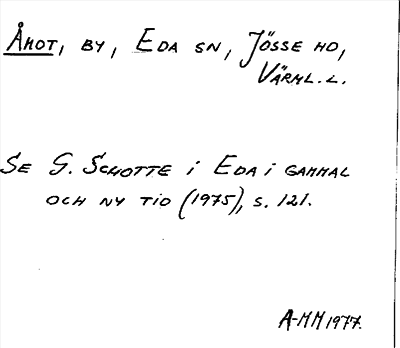 Åmot, by, Eda sn, Jösse hd,
Värml. l.
Se G. Schotte i Eda i gammal
och ny tid (1975), s. 121.
A-MM 1977.